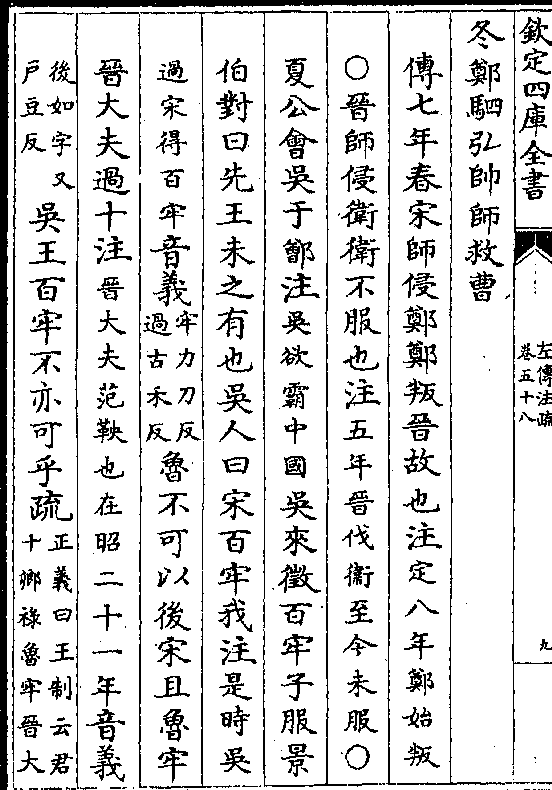 欽定四庫全書
左傳注疏
卷五十八
九
冬鄭駟弘帥師救曹
傳七年春宋師侵鄭鄭叛晉故也注定八年鄭始叛
〇晉師侵衛衛不服也注五年晉伐衛至今未服〇
夏公會吳于鄫注吳欲霸中國吳來徵百牢子服景
伯對曰先王未之有也吳人曰宋百牢我注是時吳
過宋得百牢音義牢力刀反過古禾反魯不可以後宋且魯牢
晉大夫過十注晉大夫范鞅也在昭二十一年音義
後如字又戶豆反吳王百牢不亦可乎疏正義曰王制云君十卿祿魯牢晉大